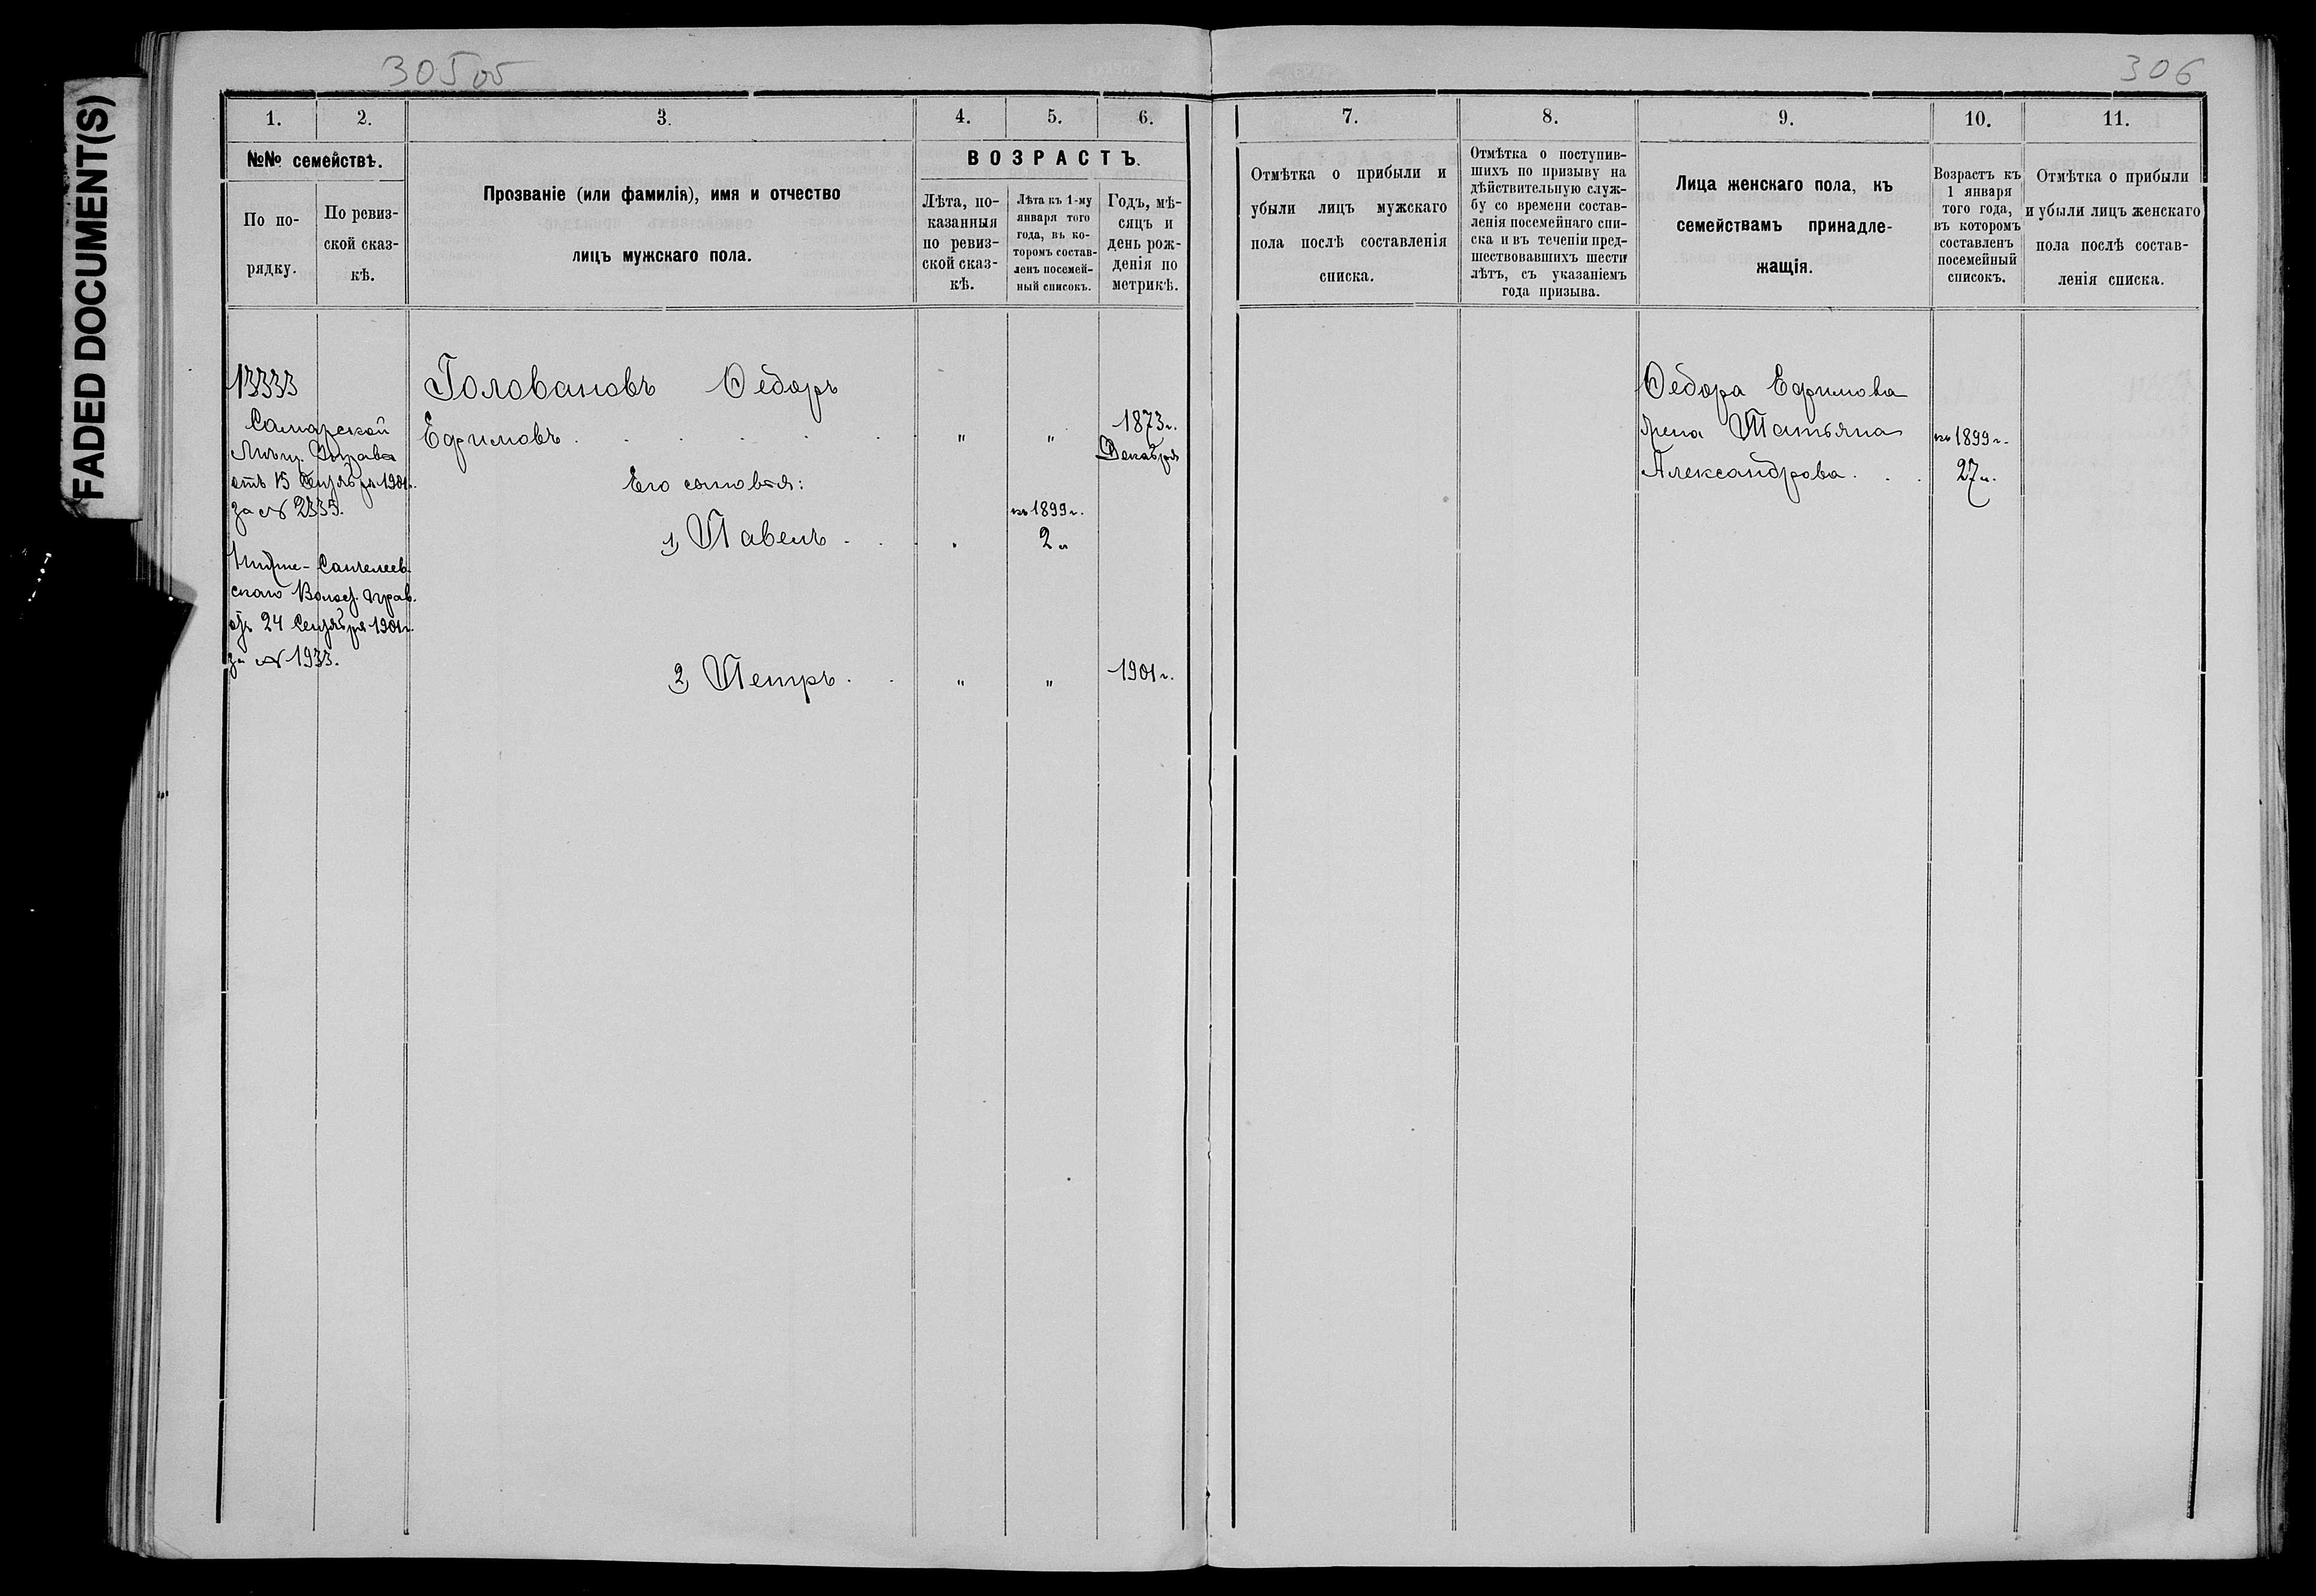 FADED DOCUMENT(S)
305 об
306
1.
2.
3.
4.
5.
6.
7.
8.
9.
10.
11.
№№ семействъ.
По по-
рядку.
По ревиз-
ской сказ-
кѣ.
Прозваніе (или фамилія), имя и отчество
лицъ мужскаго пола.
ВОЗРАСТЪ.
Лѣта, по-
казанныя
по ревиз-
ской сказ-
кѣ.
Лѣта къ 1-му
января того
года, въ ко-
торомъ состав-
ленъ посемей-
ный списокъ.
Годъ, мѣ-
сяцъ и
день рож-
денія по
метрикѣ.
Отмѣтка о прибыли и
убыли лицъ мужскаго
пола послѣ составленія
списка.
Отмѣтка о поступив-
шихъ по призыву на
дѣйствительную служ-
бу со времени состав-
ленія посемейнаго спи-
ска и въ теченіи пред-
шествовавшихъ шести
лѣтъ, съ указаніемъ
года призыва.
Лица женскаго пола, къ
семействамъ принадле-
жащія.
Возрастъ къ
1 января
того года,
въ которомъ
составленъ
посемейный
списокъ.
Отмѣтка о прибыли
и убыли лицъ женскаго
пола послѣ состав-
ленія списка.
13333
Самарской
Мѣщ. Управы
отъ 15 Сентября 1901 г.
за № 2335.
Нижне-Санчелеев-
скаго Волос. прав.
отъ 24 Сентября 1901 г.
за № 1933.
Головановъ Ѳедоръ
Ефимовъ . . . . . . " " 1873 г.
Декабря
Его сыновья:
къ 1899 г.
1) Павелъ . . . 2 л
2) Петръ . . " " 1901 г.
Ѳедора Ефимова
жена Татьяна
Александрова . . .
къ 1899 г.
27 л.